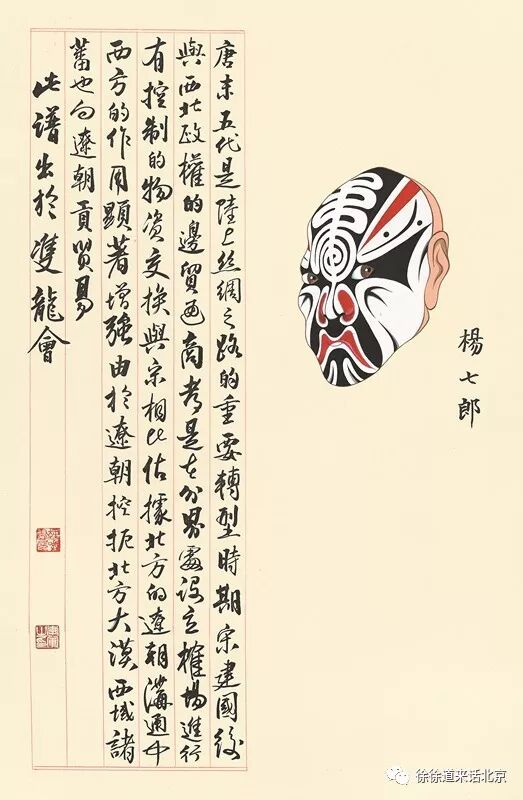 楊七郎
唐末五代是陸上丝綢之路的重要轉型時期宋建國後
與西北政權的邊貿通商者是在分界處设立榷場進行
有控制的物资交换與宋相比估據北方的遼朝溝通中
西方的作用顯著增强由於遼朝控扼北方大漠西域諸
蕃也向遼朝貢貿易
此譜出於雙龍會
徐徐道来话北京